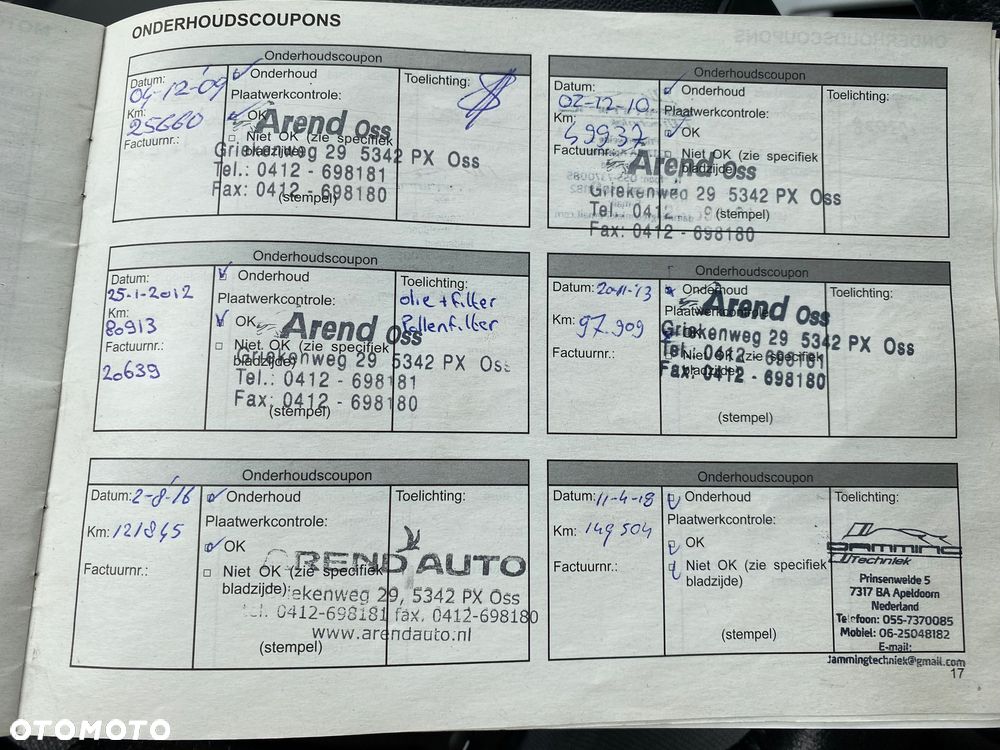 ONDERHOUDSCOUPONS
Onderhoudscoupon
Datum:
04-12-09
Km:
25660
Factuurnr.:
Onderhoud
Plaatwerkcontrole:
OK
Niet OK (zie specifiek
bladzijde)
(stempel)
Toelichting:
Arend Oss
Griekenweg 29 5342 PX Oss
Tel.: 0412 - 698181
Fax: 0412 - 698180
Onderhoudscoupon
Datum:
02-12-10
Km:
49937
Factuurnr.:
Onderhoud
Plaatwerkcontrole:
OK
Niet OK (zie specifiek
bladzijde)
(stempel)
Toelichting:
Arend Oss
Griekenweg 29 5342 PX Oss
Tel.: 0412
Fax: 0412 - 698180
Onderhoudscoupon
Datum:
25-1-2012
Km:
80913
Factuurnr.:
20639
Onderhoud
Plaatwerkcontrole:
OK
Niet OK (zie specifiek
bladzijde)
(stempel)
Toelichting:
olie + filter
Pollenfilter
Arend Oss
Griekenweg 29 5342 PX Oss
Tel.: 0412 - 698181
Fax: 0412 - 698180
Onderhoudscoupon
Datum: 20-11-'13
Km: 97.909
Factuurnr.:
Onderhoud
Plaatwerkcontrole:
Niet OK (zie specifiek
bladzijde)
(stempel)
Toelichting:
Arend Oss
Griekenweg 29 5342 PX Oss
Tel.: 0412 - 698181
Fax: 0412 - 698180
Onderhoudscoupon
Datum: 2-8-'16
Km: 121845
Factuurnr.:
Onderhoud
Plaatwerkcontrole:
OK
Niet OK (zie specifiek
bladzijde)
(stempel)
Toelichting:
AREND AUTO
ekenweg 29, 5342 PX Oss
tel. 0412-698181 fax. 0412-698180
www.arendauto.nl
Onderhoudscoupon
Datum: 11-4-18
Km: 149504
Factuurnr.:
Onderhoud
Plaatwerkcontrole:
OK
Niet OK (zie specifiek
bladzijde)
(stempel)
Toelichting:
Jamming
Techniek
Prinsenweide 5
7317 BA Apeldoorn
Nederland
Telefoon: 055-7370085
Mobiel: 06-25048182
E-mail:
Jammingtechniek@gmail.com
17
OTOMOTO